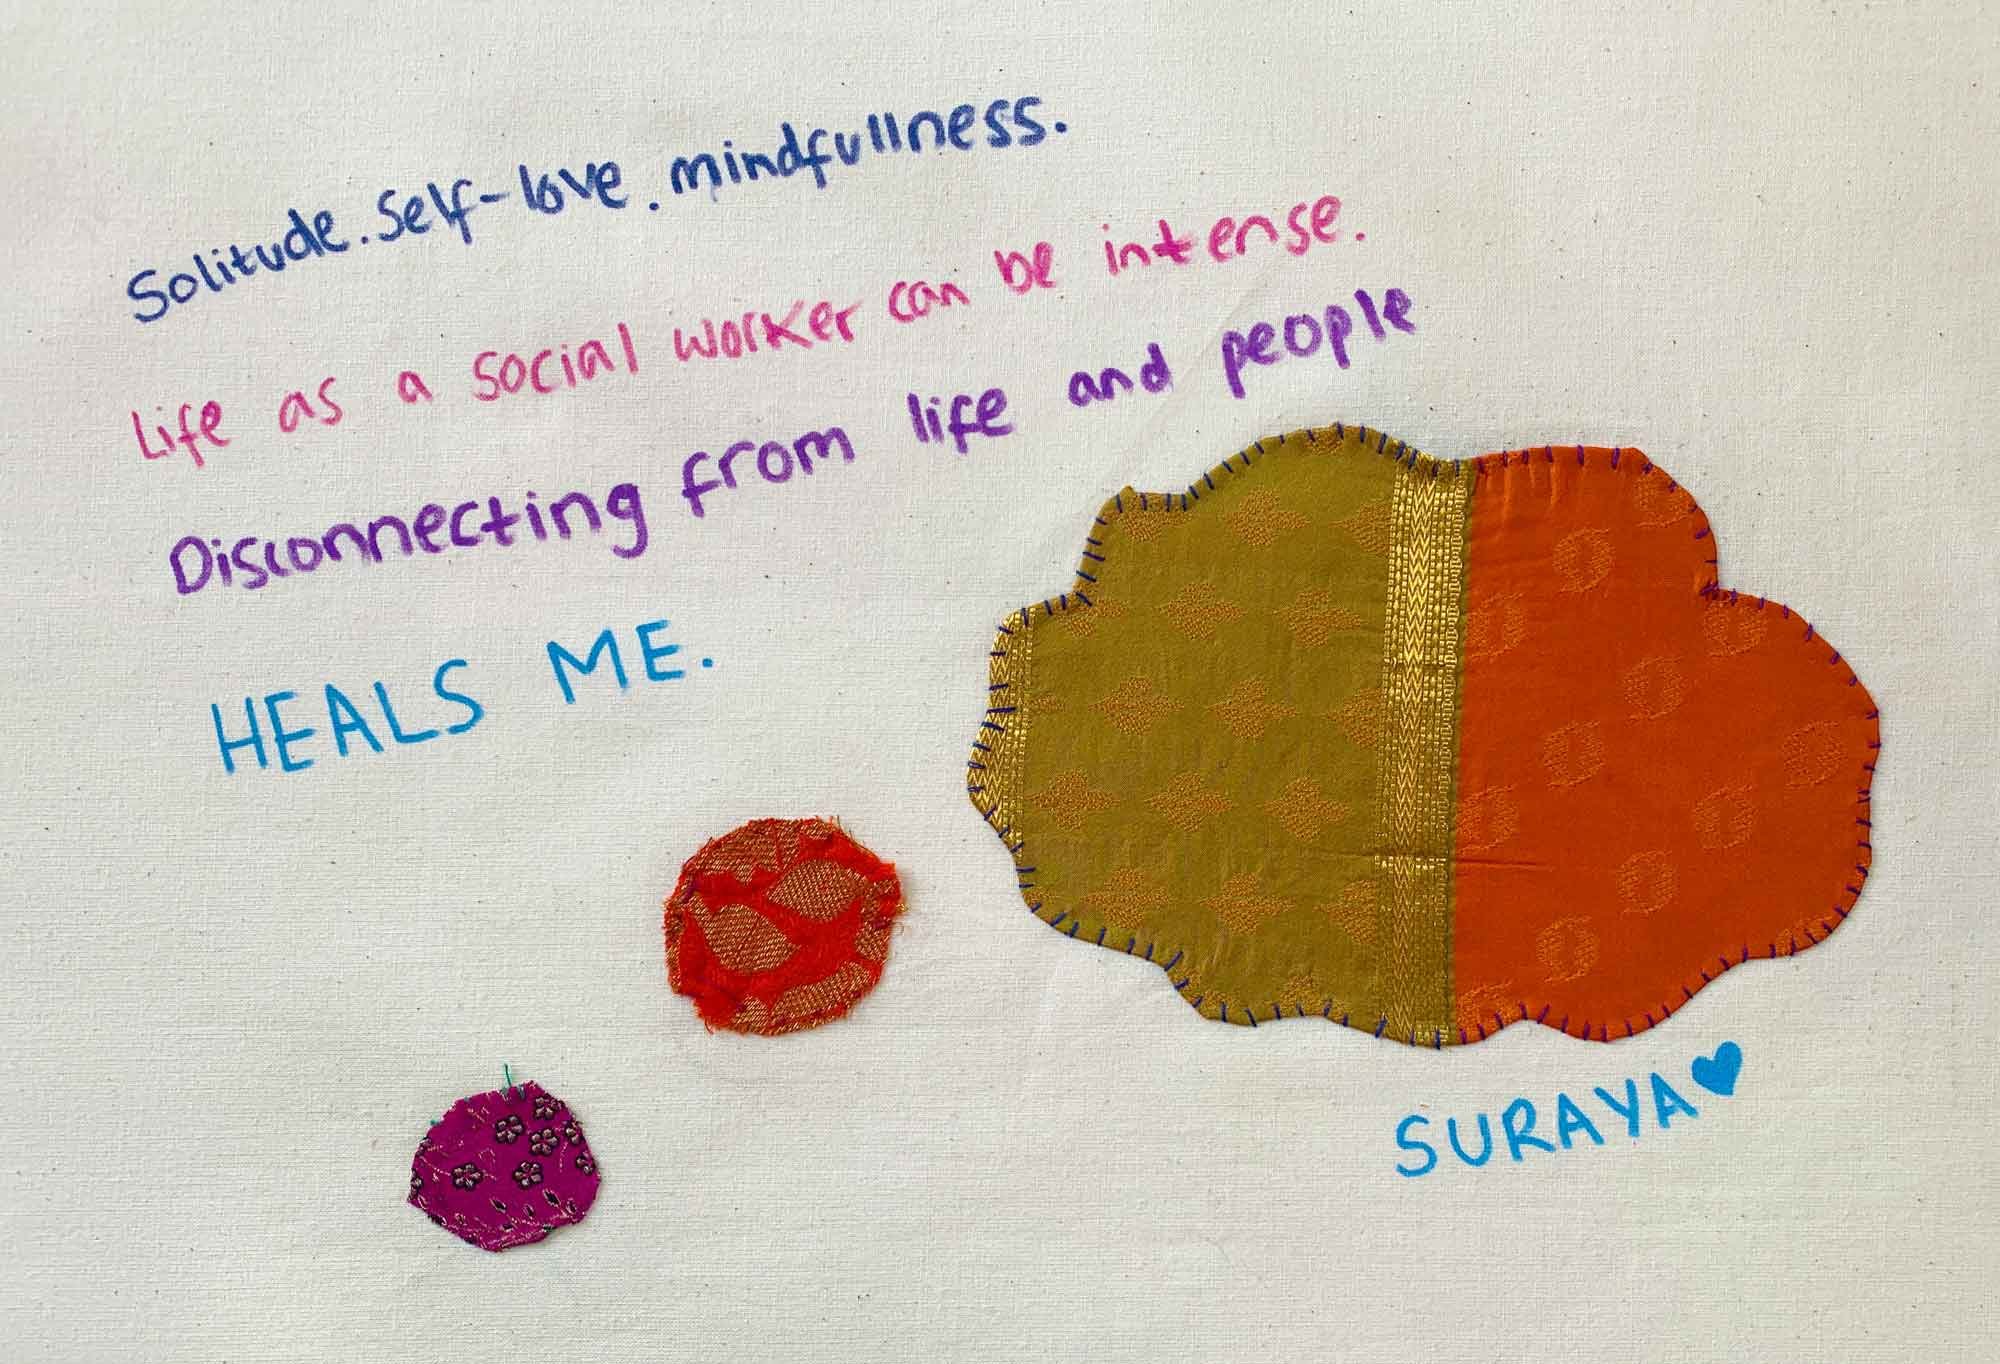 Solitude. Self-love. mindfullness.
Life as a social worker can be intense.
Disconnecting from life and people
HEALS ME.
SURAYA♥